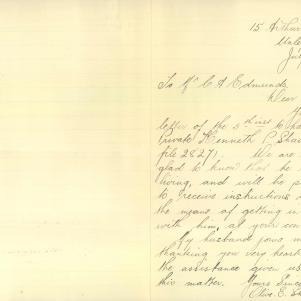 15 Arthur
July
To Mr C A Edmunds
Dear
letter of the 5th inst to ha
Private Kenneth C Shaw
file 2827). We are
glad to know that he is
living, and will be p
to receive instructions
the means of getting in
with him, at your con
My husband joins m
thanking you very heart
the assistance given us
this matter. Yours Since
(Olive E. Sh